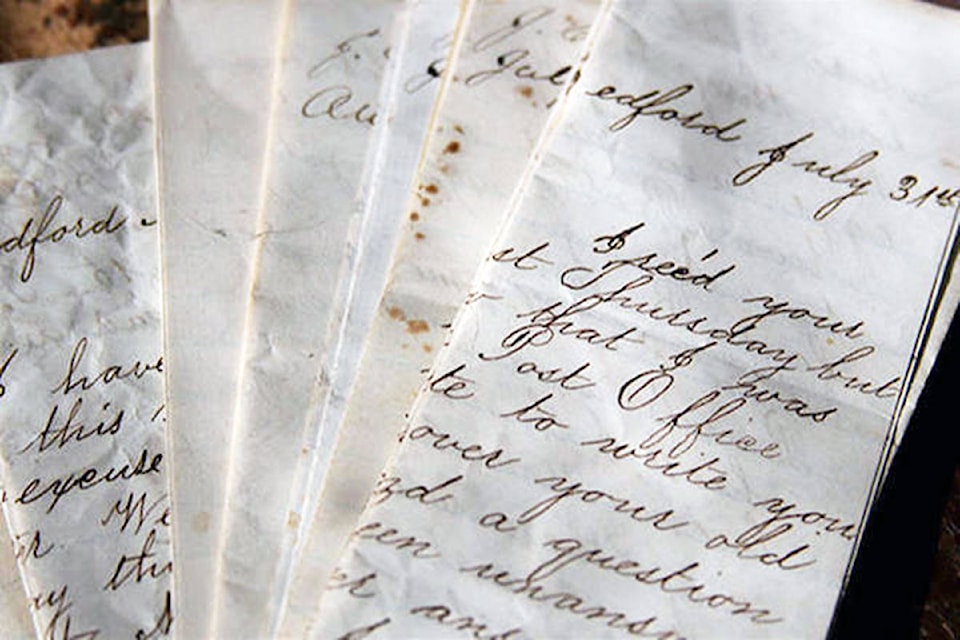 dford
have
this
excuse
We
thi
Au
J.
Jul
edford July 31st
I rec'd your
st Thursday but
that I was
Post Office
te to write you
over your old
d a question
een unans
er an